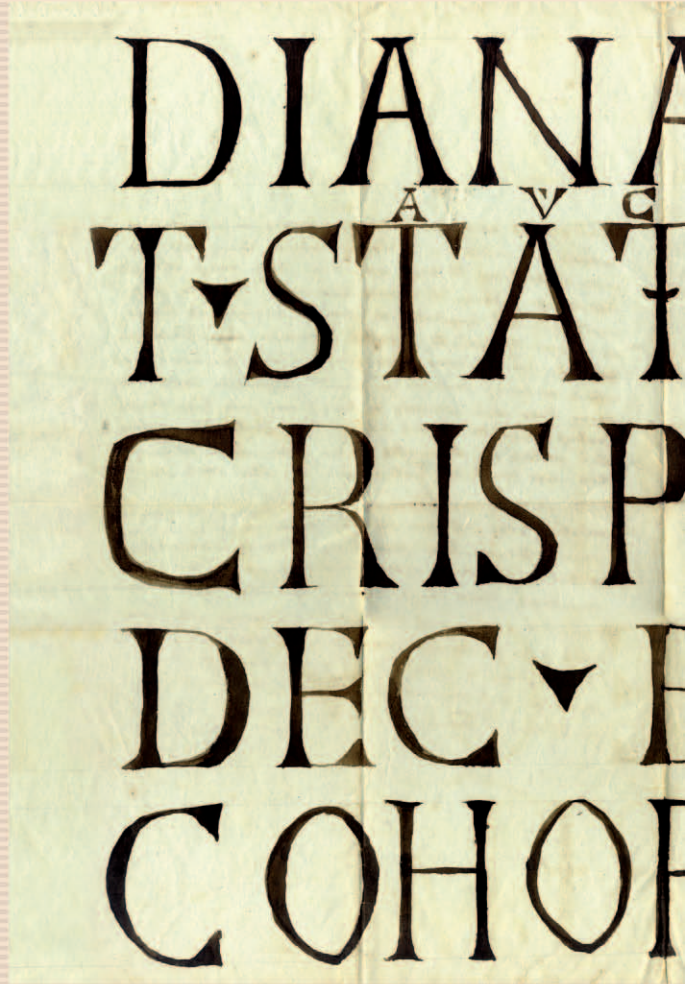 DIANA
A V C
T·STAT
CRISP
DEC·E
COHOR